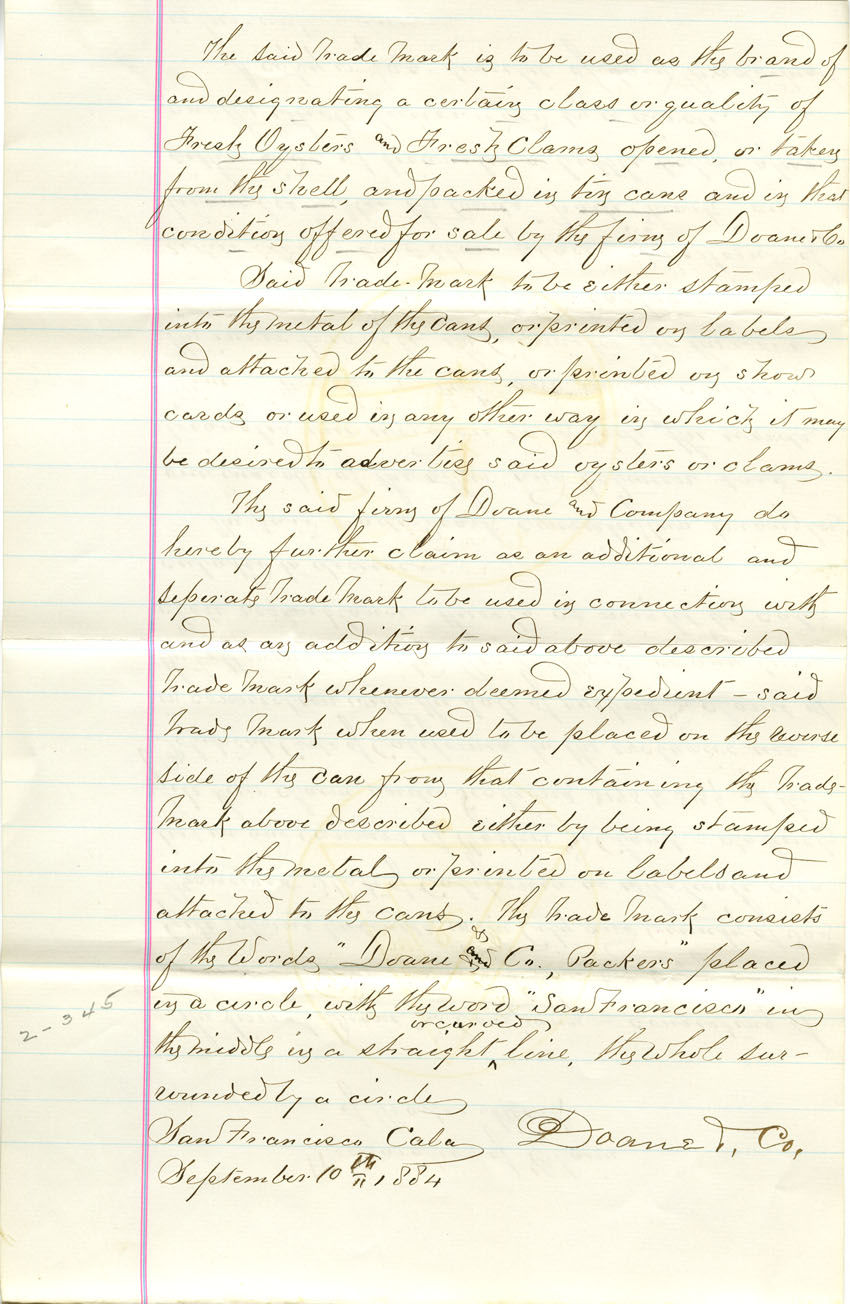 The said Trade Mark is to be used as the brand of
and designating a certain class or quality of
Fresh Oysters and Fresh Clams opened, or taken
from the shell, and packed in tin cans and in that
condition offered for sale by the firm of Doane & Co
Said Trade-Mark to be either stamped
into the metal of the cans, or printed on labels
and attached to the cans, or printed on show
cards or used in any other way in which it may
be desired to advertise said oysters or clams.
The said firm of Doane and Company do
hereby further claim as an additional and
seperate Trade Mark to be used in connection with
and as an addition to said above described
Trade Mark whenever deemed expedient – said
Trade Mark when used to be placed on the reverse
side of the can from that containing the Trade-
Mark above described either by being stamped
into the metal or printed on labels and
attached to the cans. The Trade Mark consists
&
of the Words "Doane and Co., Packers" placed
in a circle, with the word "San Francisco" in
or curved
the middle in a straight ^ line, the whole sur-
rounded by a circle
San Francisco Cala Doane &, Co,
September 10th 1884
2-345